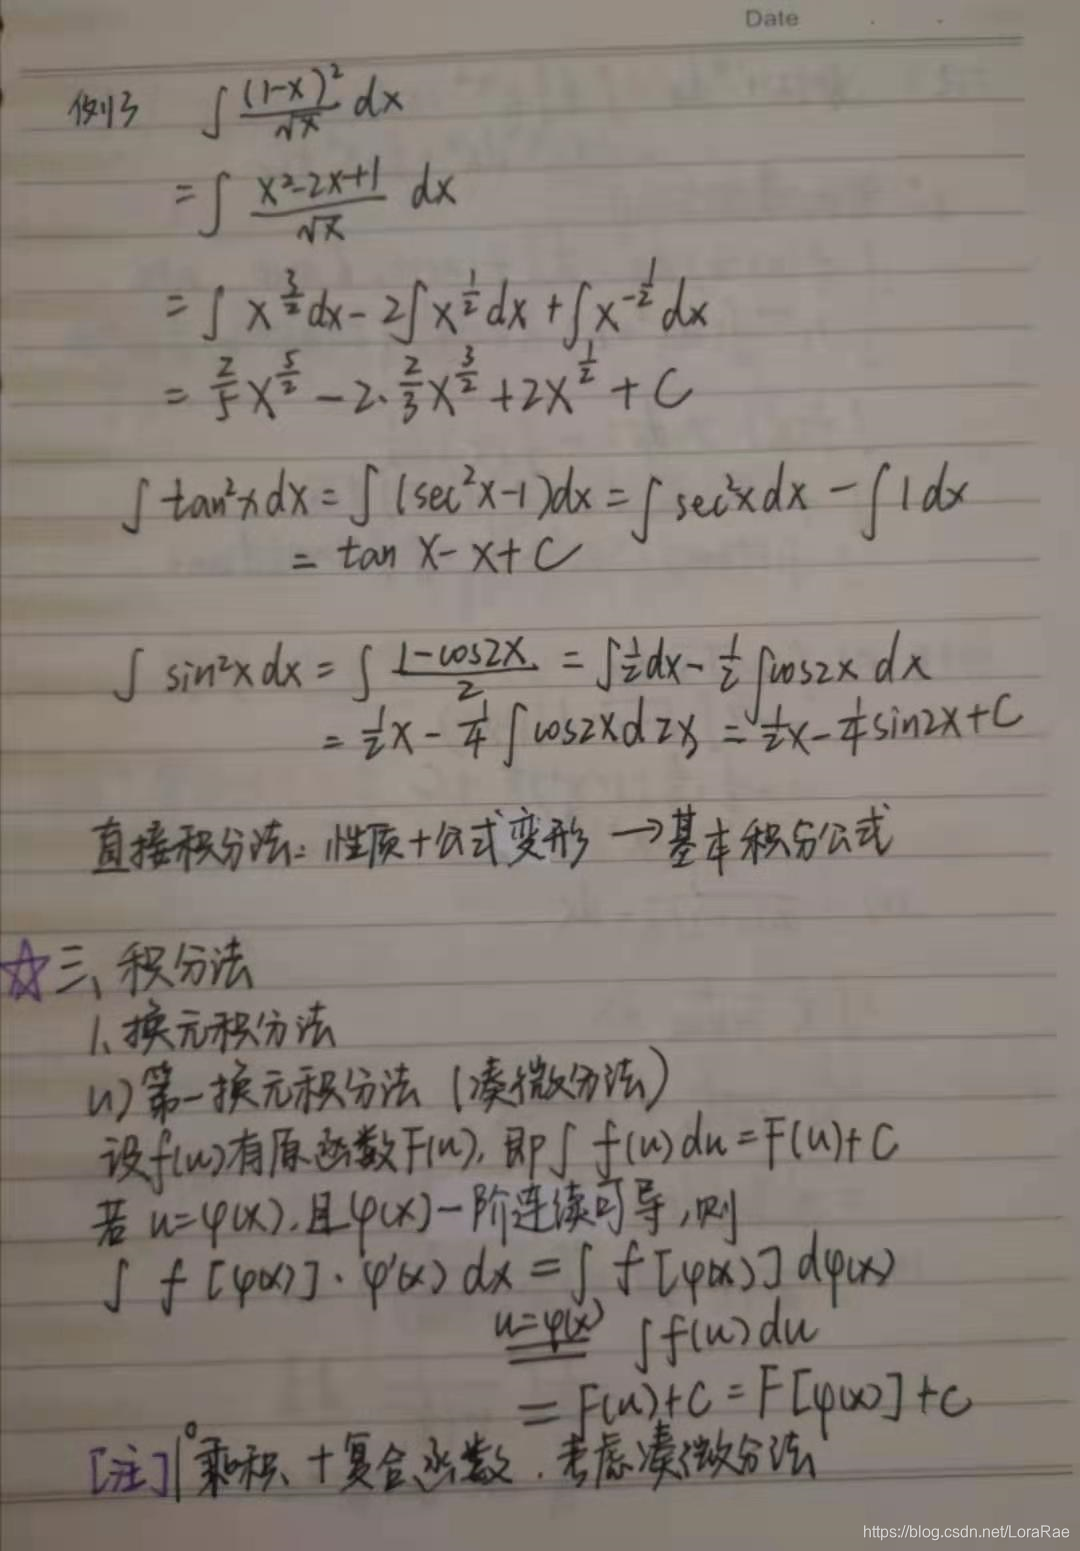 Date
例3 ∫ (1-x)²/√x dx
= ∫ (x²-2x+1)/√x dx
= ∫ x^(3/2) dx - 2∫ x^(1/2) dx + ∫ x^(-1/2) dx
= 2/5 x^(5/2) - 2·2/3 x^(3/2) + 2x^(1/2) + C
∫ tan²x dx = ∫ (sec²x-1) dx = ∫ sec²x dx - ∫ 1 dx
= tan x - x + C
∫ sin²x dx = ∫ (1-cos2x)/2 = ∫ 1/2 dx - 1/2 ∫ cos2x dx
= 1/2 x - 1/4 ∫ cos2x d2x = 1/2 x - 1/4 sin2x + C
直接积分法: 性质+公式变形 → 基本积分公式
☆三、积分法
1、换元积分法
(1) 第一换元积分法 (凑微分法)
设f(u)有原函数F(u), 即∫ f(u) du = F(u) + C
若 u=φ(x), 且φ(x)一阶连续可导, 则
∫ f[φ(x)]·φ'(x) dx = ∫ f[φ(x)] dφ(x)
u=φ(x) ∫ f(u) du
= F(u)+C = F[φ(x)]+C
[注] 1° 乘积+复合函数, 考虑凑微分法
https://blog.csdn.net/LoraRae